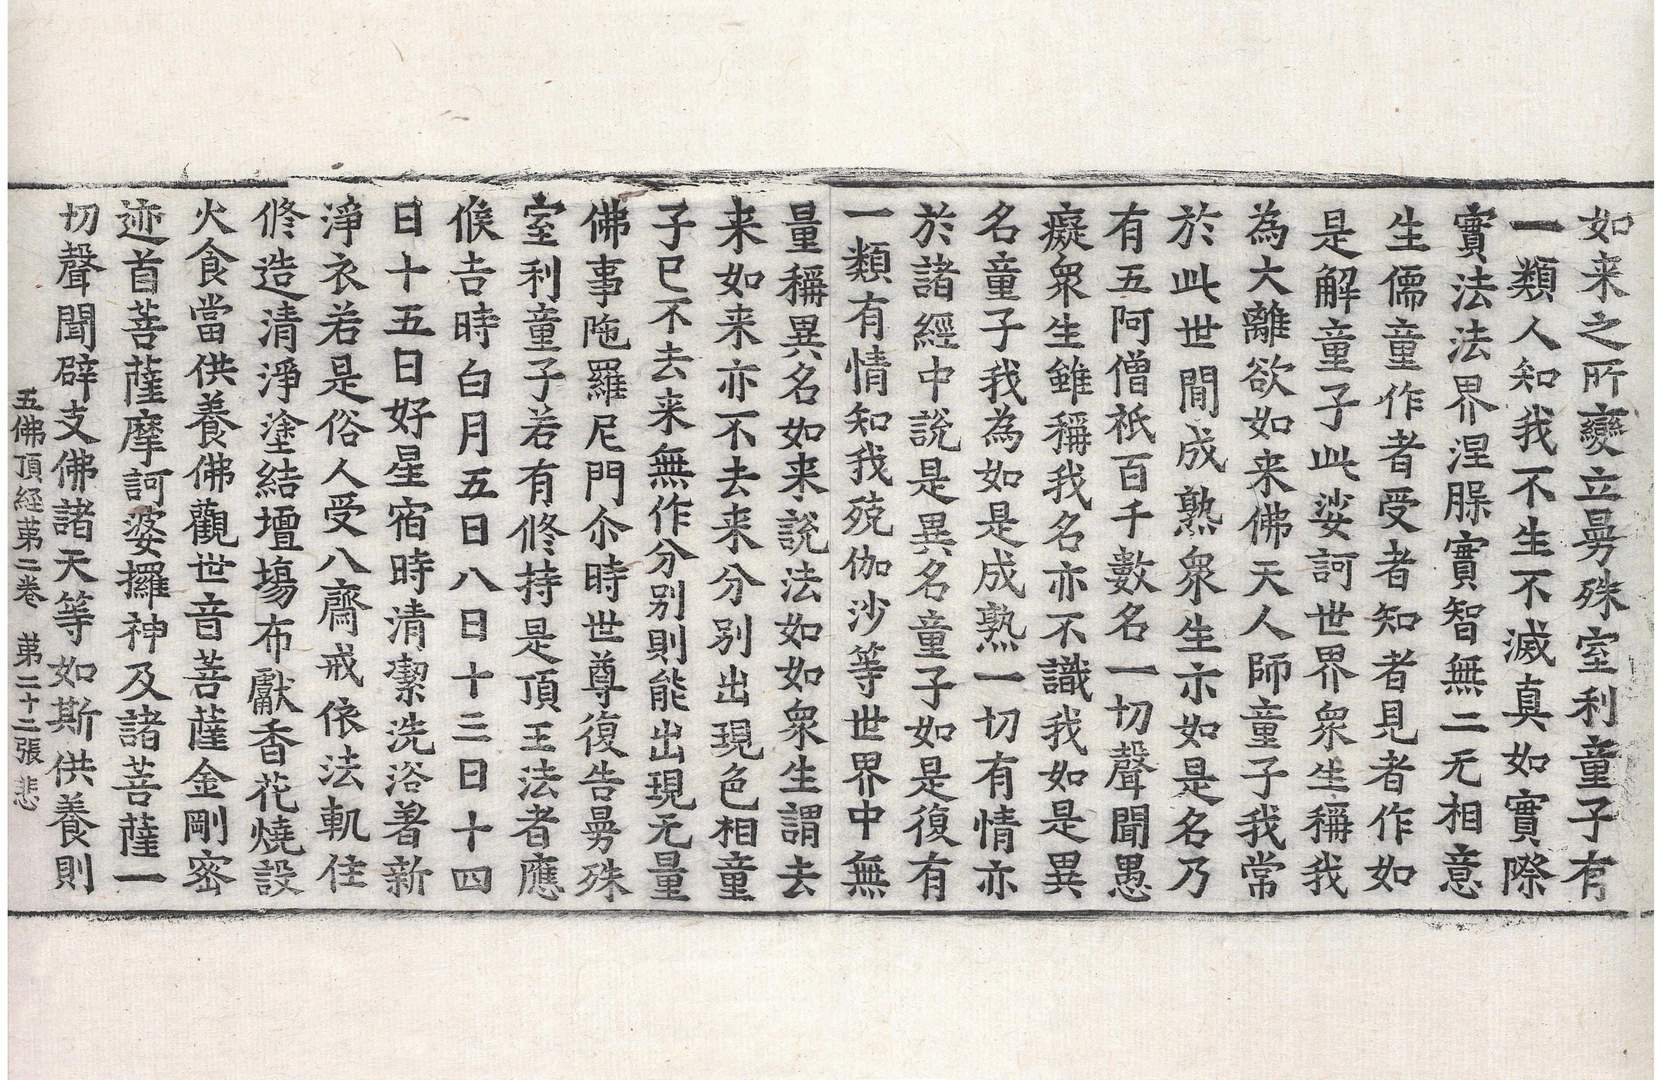 如来之所變立㬅殊室利童子有
一類人知我不生不滅真如實際
實法法界涅躁實智無二无相意
生儒童作者受者知者見者作如
是解童子此娑訶世界衆生稱我
為大離欲如来佛天人師童子我常
於此世間成熟衆生亦如是名乃
有五阿僧祇百千數名一切聲聞愚
癡衆生雖稱我名亦不識我如是異
名童子我為如是成熟一切有情亦
於諸經中說是異名童子如是復有
一類有情知我殑伽沙等世界中無
量稱異名如来說法如如衆生謂去
来如来亦不去来分別出現色相童
子已不去来無作分別則能出現无量
佛事陁羅尼門尒時世尊復告㬅殊
室利童子若有修持是頂王法者應
候吉時白月五日八日十三日十四
日十五日好星宿時清潔洗浴著新
淨衣若是俗人受八齋戒依法軌住
修造清淨塗結壇場布獻香花燒設
火食當供養佛觀世音菩薩金剛密
迹首菩薩摩訶婆攞神及諸菩薩一
切聲聞辟支佛諸天等如斯供養則
五佛頂經苐二卷 苐二十二張 悲